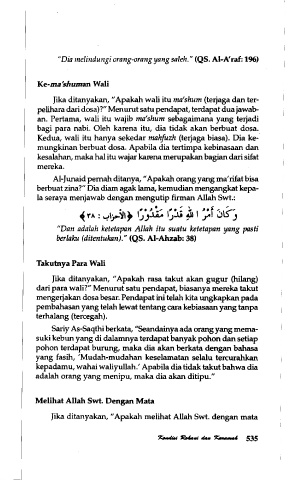 "Dia melindungi orang-orang yang saleh." (QS. Al-A'raf: 196)
Ke-ma'shuman Wali
Jika ditanyakan, "Apakah wali itu ma'shum (terjaga dan ter-
pelihara dari dosa)?" Menurut satu pendapat, terdapat dua jawab-
an. Pertama, wali itu wajib ma'shum sebagaimana yang terjadi
bagi para nabi. Oleh karena itu, dia tidak akan berbuat dosa.
Kedua, wali itu hanya sekedar mahfuzh (terjaga biasa). Dia ke-
mungkinan berbuat dosa. Apabila dia tertimpa kebinasaan dan
kesalahan, maka hal itu wajar karena merupakan bagian dari sifat
mereka.
Al-Junaid pernah ditanya, "Apakah orang yang ma'rifat bisa
berbuat zina?" Dia diam agak lama, kemudian mengangkat kepa-
la seraya menjawab dengan mengutip firman Allah Swt.:
وَكَانَ أَمْرُ اللهِ قَدَرًا مَقْدُوْرًا ﴿الأحزاب : ٣٨﴾
"Dan adalah ketetapan Allah itu suatu ketetapan yang pasti
berlaku (ditentukan)." (QS. Al-Ahzab: 38)
Takutnya Para Wali
Jika ditanyakan, "Apakah rasa takut akan gugur (hilang)
dari para wali?" Menurut satu pendapat, biasanya mereka takut
mengerjakan dosa besar. Pendapat ini telah kita ungkapkan pada
pembahasan yang telah lewat tentang cara kebiasaan yang tanpa
terhalang (tercegah).
Sariy As-Saqthi berkata, "Seandainya ada orang yang mema-
suki kebun yang di dalamnya terdapat banyak pohon dan setiap
pohon terdapat burung, maka dia akan berkata dengan bahasa
yang fasih, 'Mudah-mudahan keselamatan selalu tercurahkan
kepadamu, wahai waliyullah.' Apabila dia tidak takut bahwa dia
adalah orang yang menipu, maka dia akan ditipu."
Melihat Allah Swt. Dengan Mata
Jika ditanyakan, "Apakah melihat Allah Swt. dengan mata
Kondisi Rohani dan Karamah 535